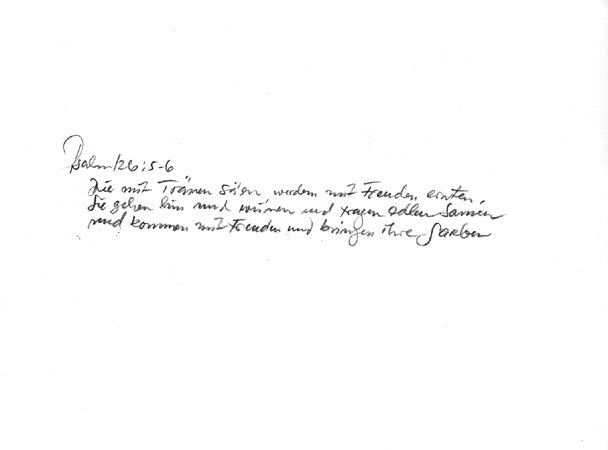 Psalm 126:5-6
Die mit Tränen säen werden mit Freuden ernten.
Sie gehen hin und weinen und tragen edlen Samen
und kommen mit Freuden und bringen ihre Garben